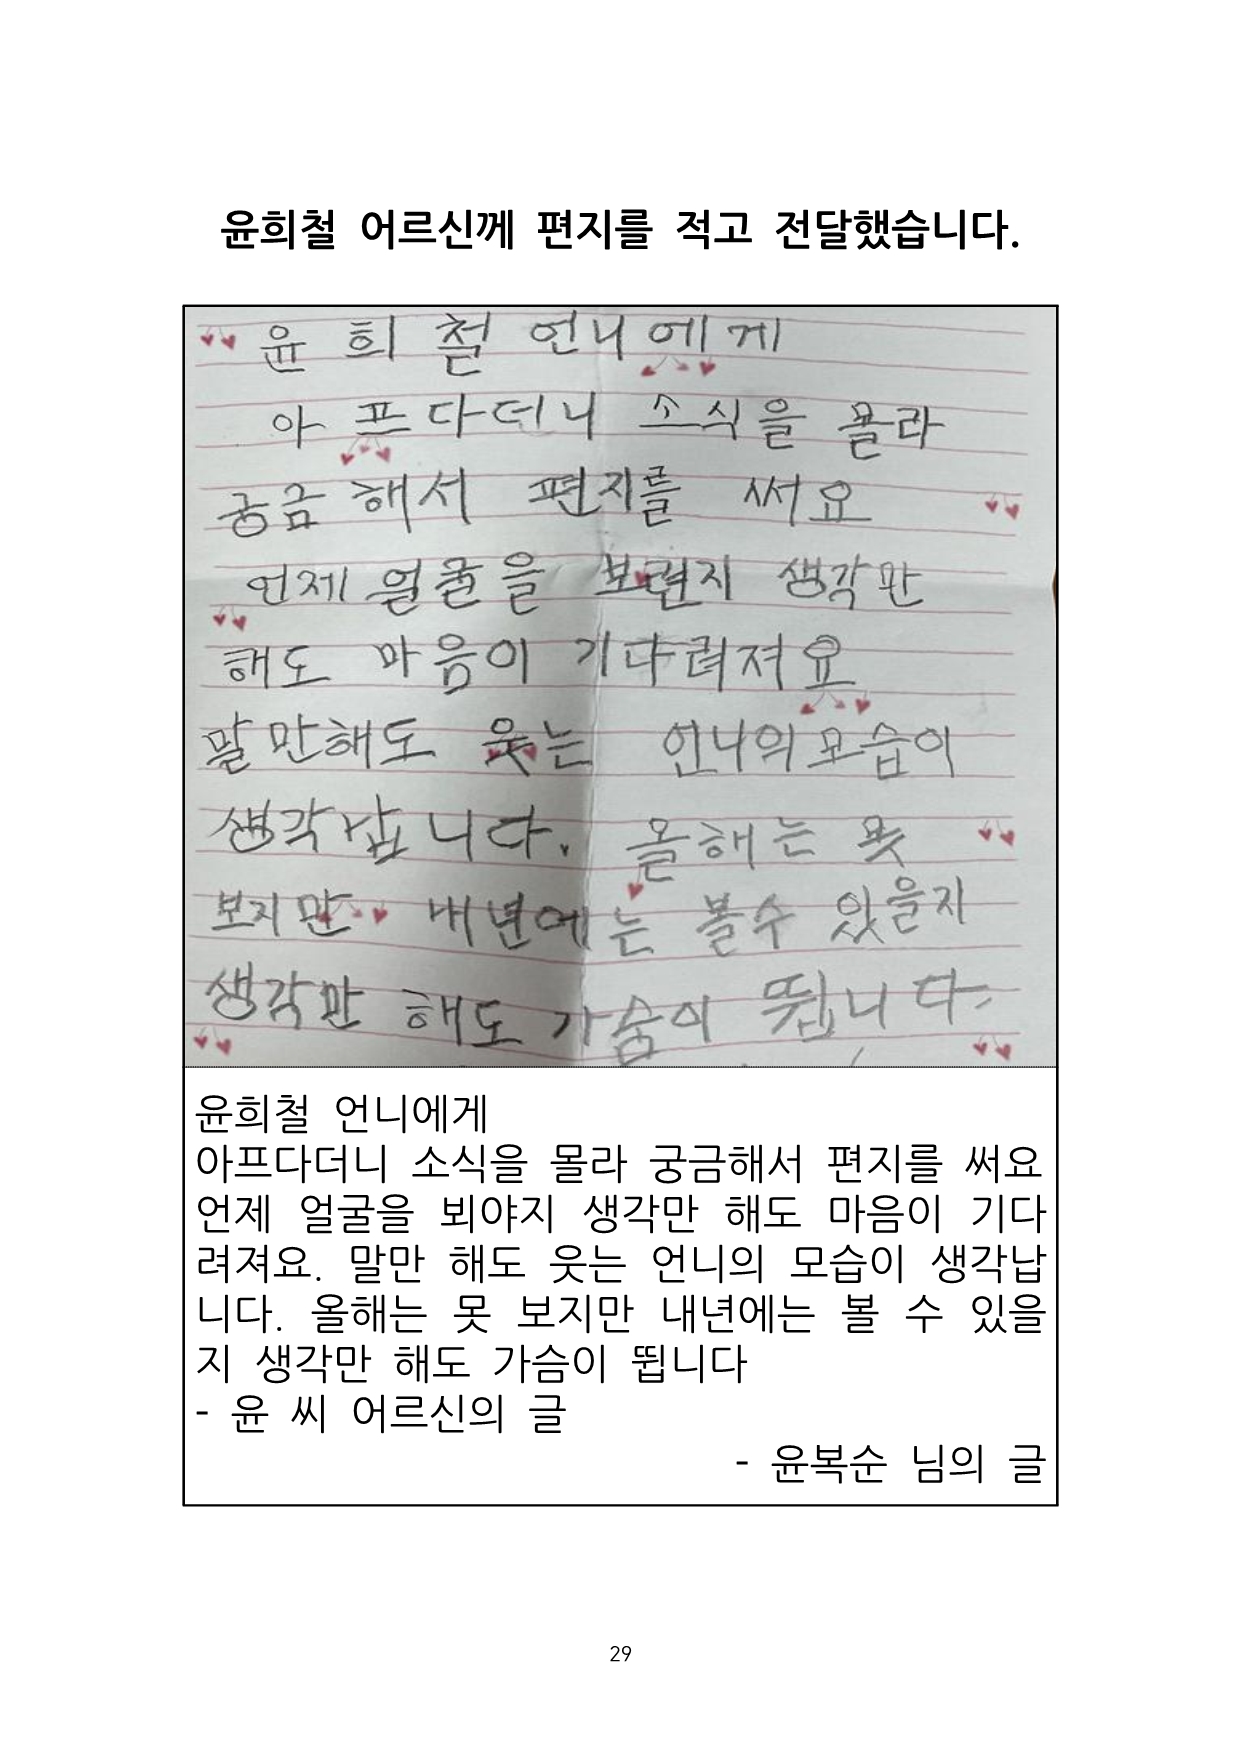 윤희철 어르신께 편지를 적고 전달했습니다.
윤 희 철 언니에게
아 프다더니 소식을 몰라
궁금해서 편지를 써요
언제 얼굴을 보련지 생각만
해도 마음이 기다려저요
말만해도 웃는 언니의모습이
생각납니다. 올해는 못
보지만 내년에는 볼수 있을지
생각만 해도 가슴이 뜁니다.
윤희철 언니에게
아프다더니 소식을 몰라 궁금해서 편지를 써요
언제 얼굴을 뵈야지 생각만 해도 마음이 기다
려져요. 말만 해도 웃는 언니의 모습이 생각납
니다. 올해는 못 보지만 내년에는 볼 수 있을
지 생각만 해도 가슴이 뜁니다
- 윤 씨 어르신의 글
- 윤복순 님의 글
29